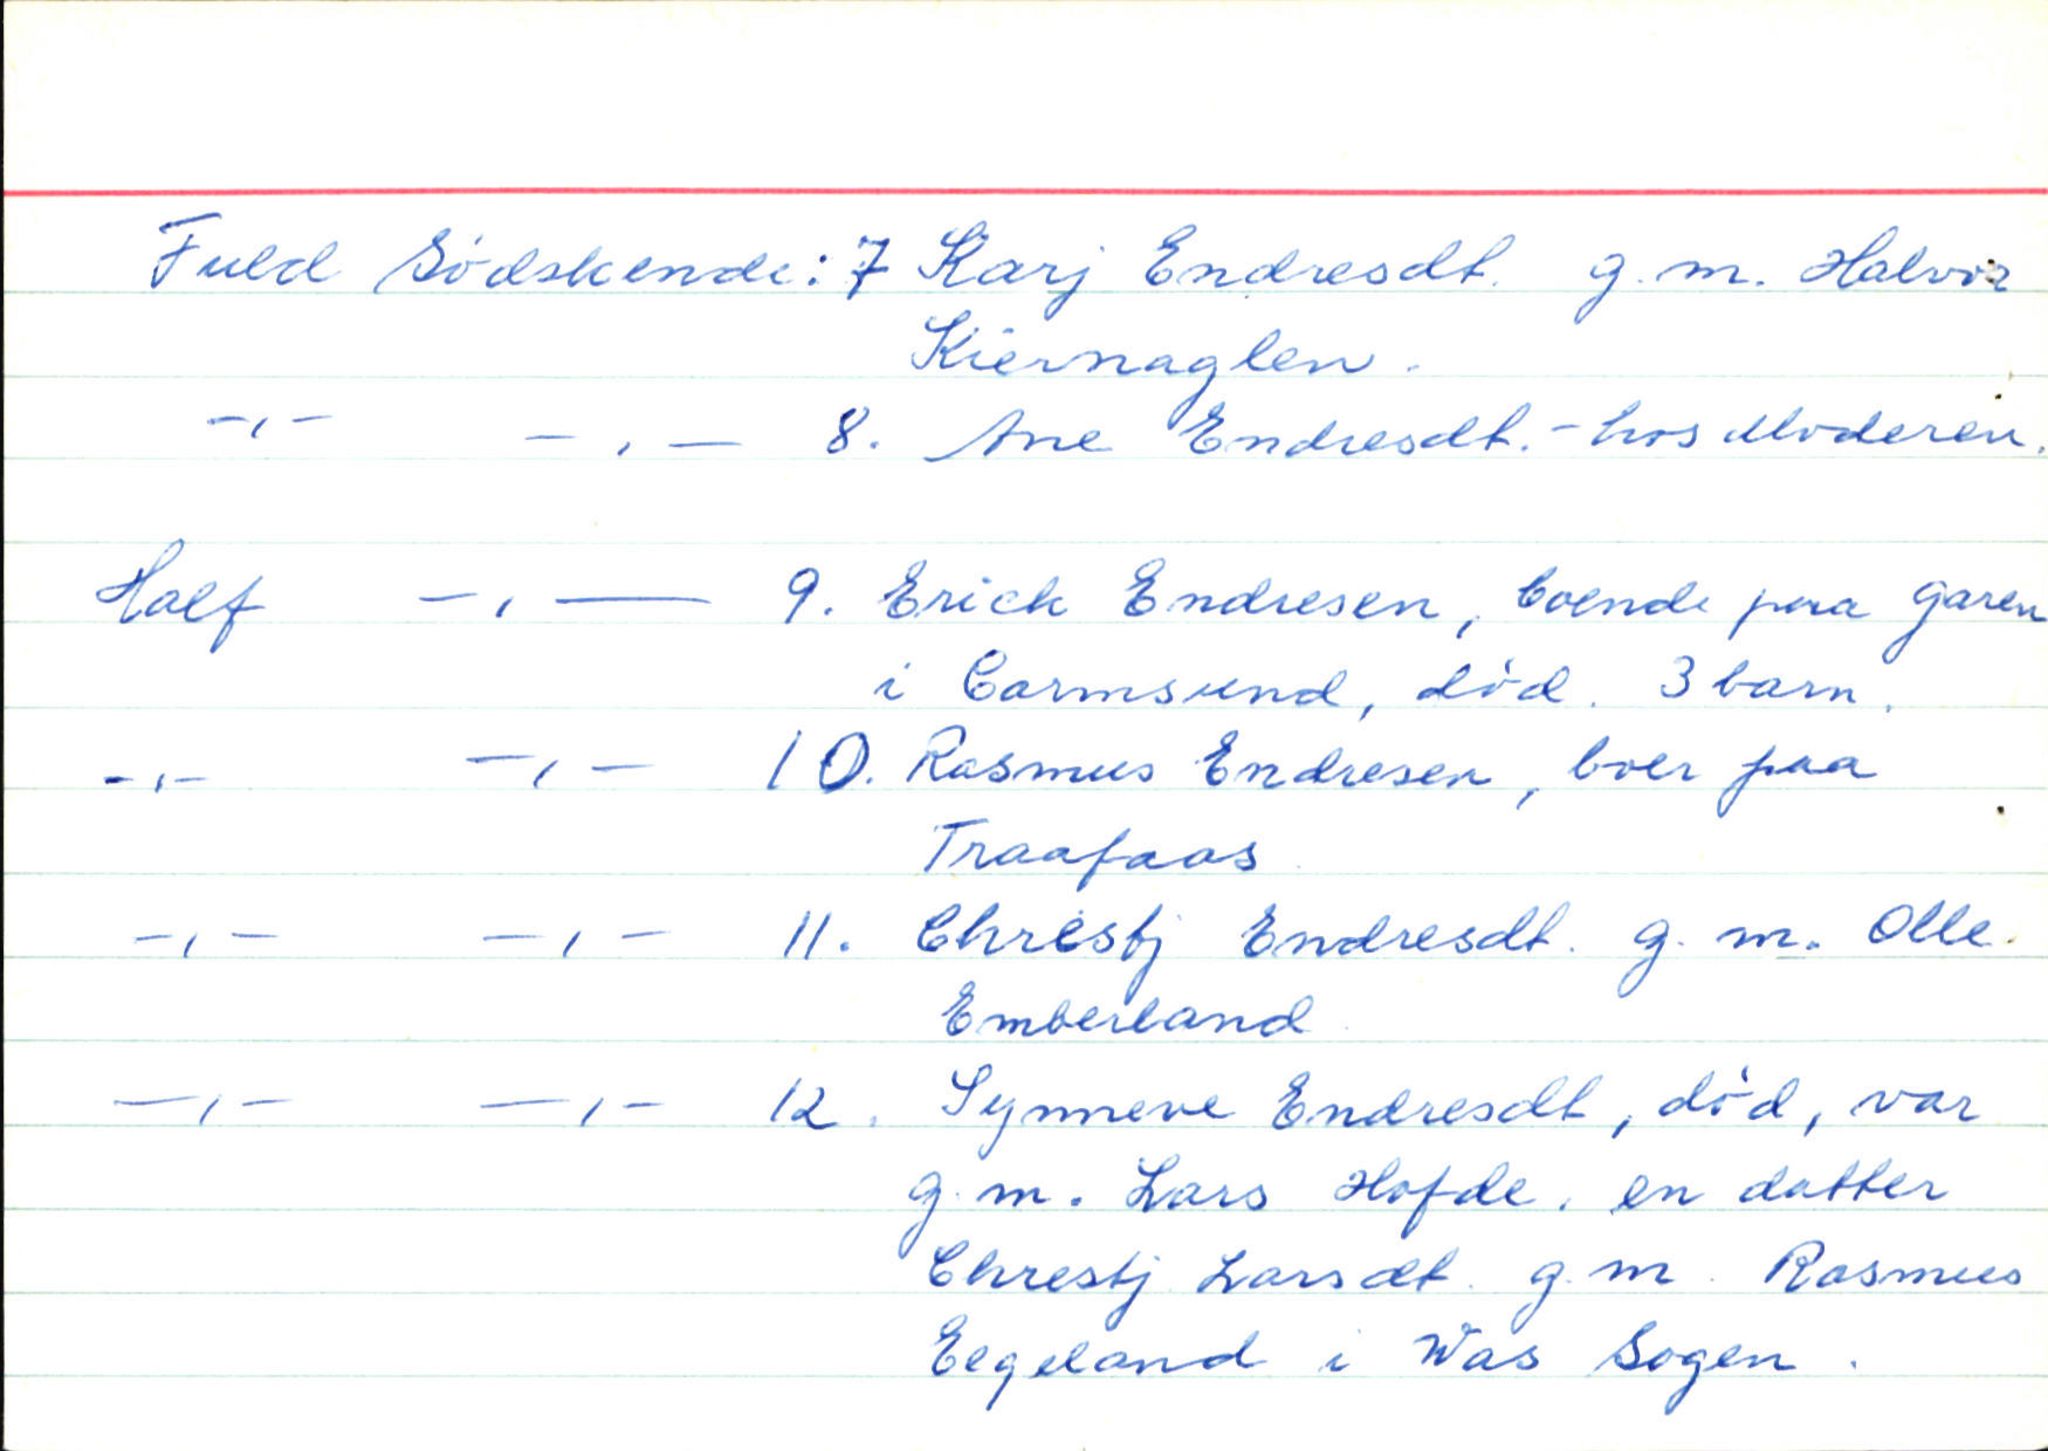 Fuld Södskende: 7 Karj Endresdt. g. m. Halvor
Kiernaglen.
-,- -,- 8. Ane Endresdt. - hos Moderen.
Half -,- 9. Erick Endresen, boende paa Garen
i Carmsund, död. 3 barn.
-,- -,- 10. Rasmus Endresen, boer paa
Traafaas
-,- -,- 11. Chrestj Endresdt. g. m. Olle
Emberland
-,- -,- 12. Synneve Endresdt, död, var
g. m. Lars Hofde. en datter
Chrestj Larsdt. g. m. Rasmus
Eegeland i Was Sogen.